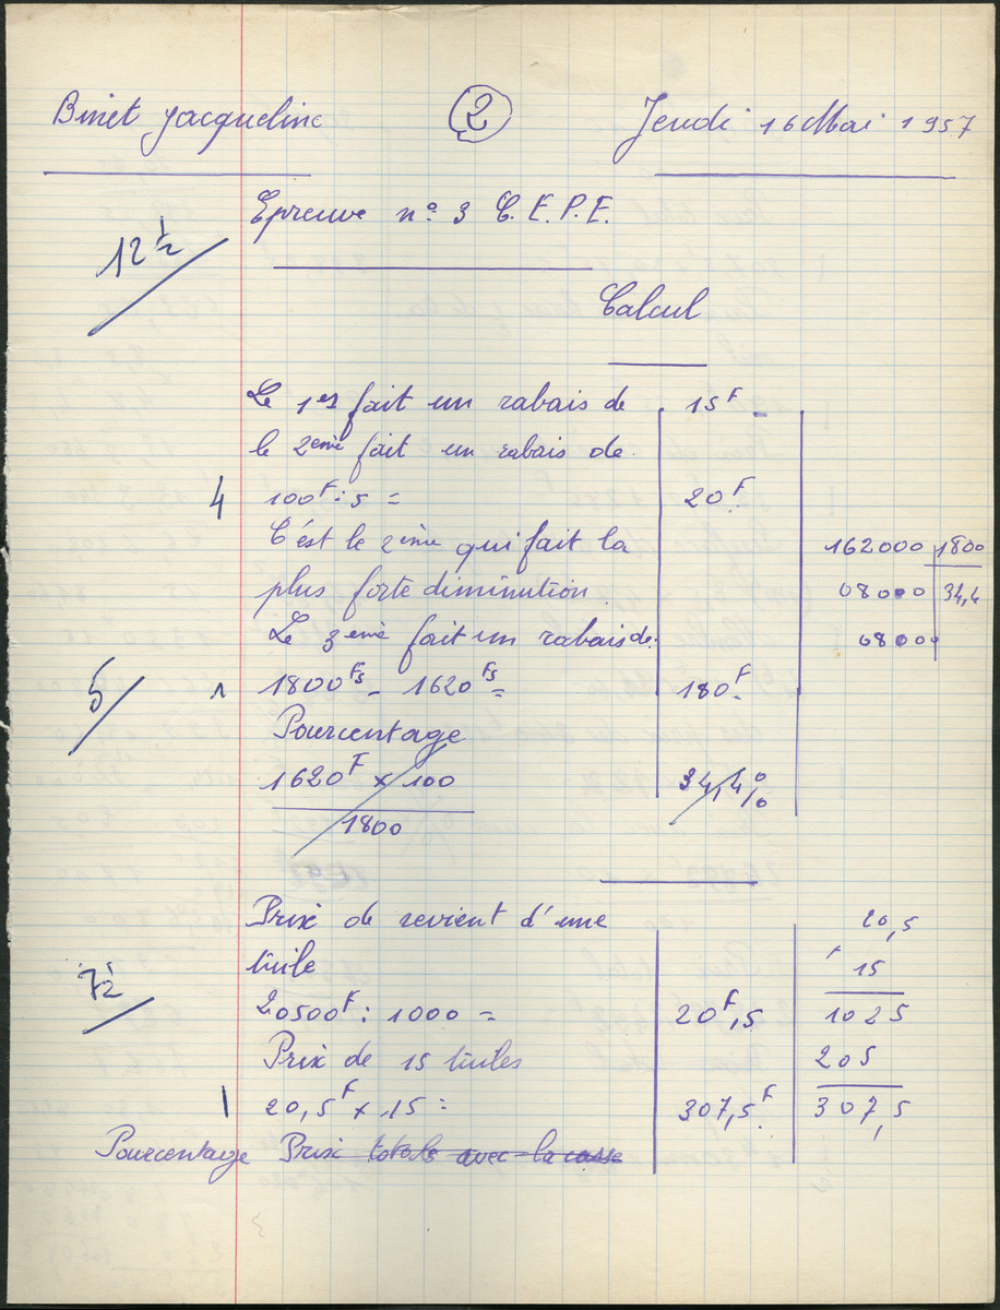 Binet Jacqueline 2 Jeudi 16 Mai 1957
Epreuve n° 3 C.E.P.E.
12 ½
Calcul
Le 1er fait un rabais de 15F
le 2ème fait un rabais de
4 100F : 5 = 20F
C'est le 2ème qui fait la 162000 1800
plus forte diminution 08000 34,4
Le 3ème fait un rabais de 08000
5 1 1800Fs - 1620Fs = 180F
Pourcentage
1620F x 100 34,4%
1800
Prix de revient d'une 20,5
tuile 15
7½ 20500F : 1000 = 20F,5 1025
Prix de 15 tuiles 205
1 20,5F x 15 = 307,5F 307,5
Pourcentage Prix totale avec la casse